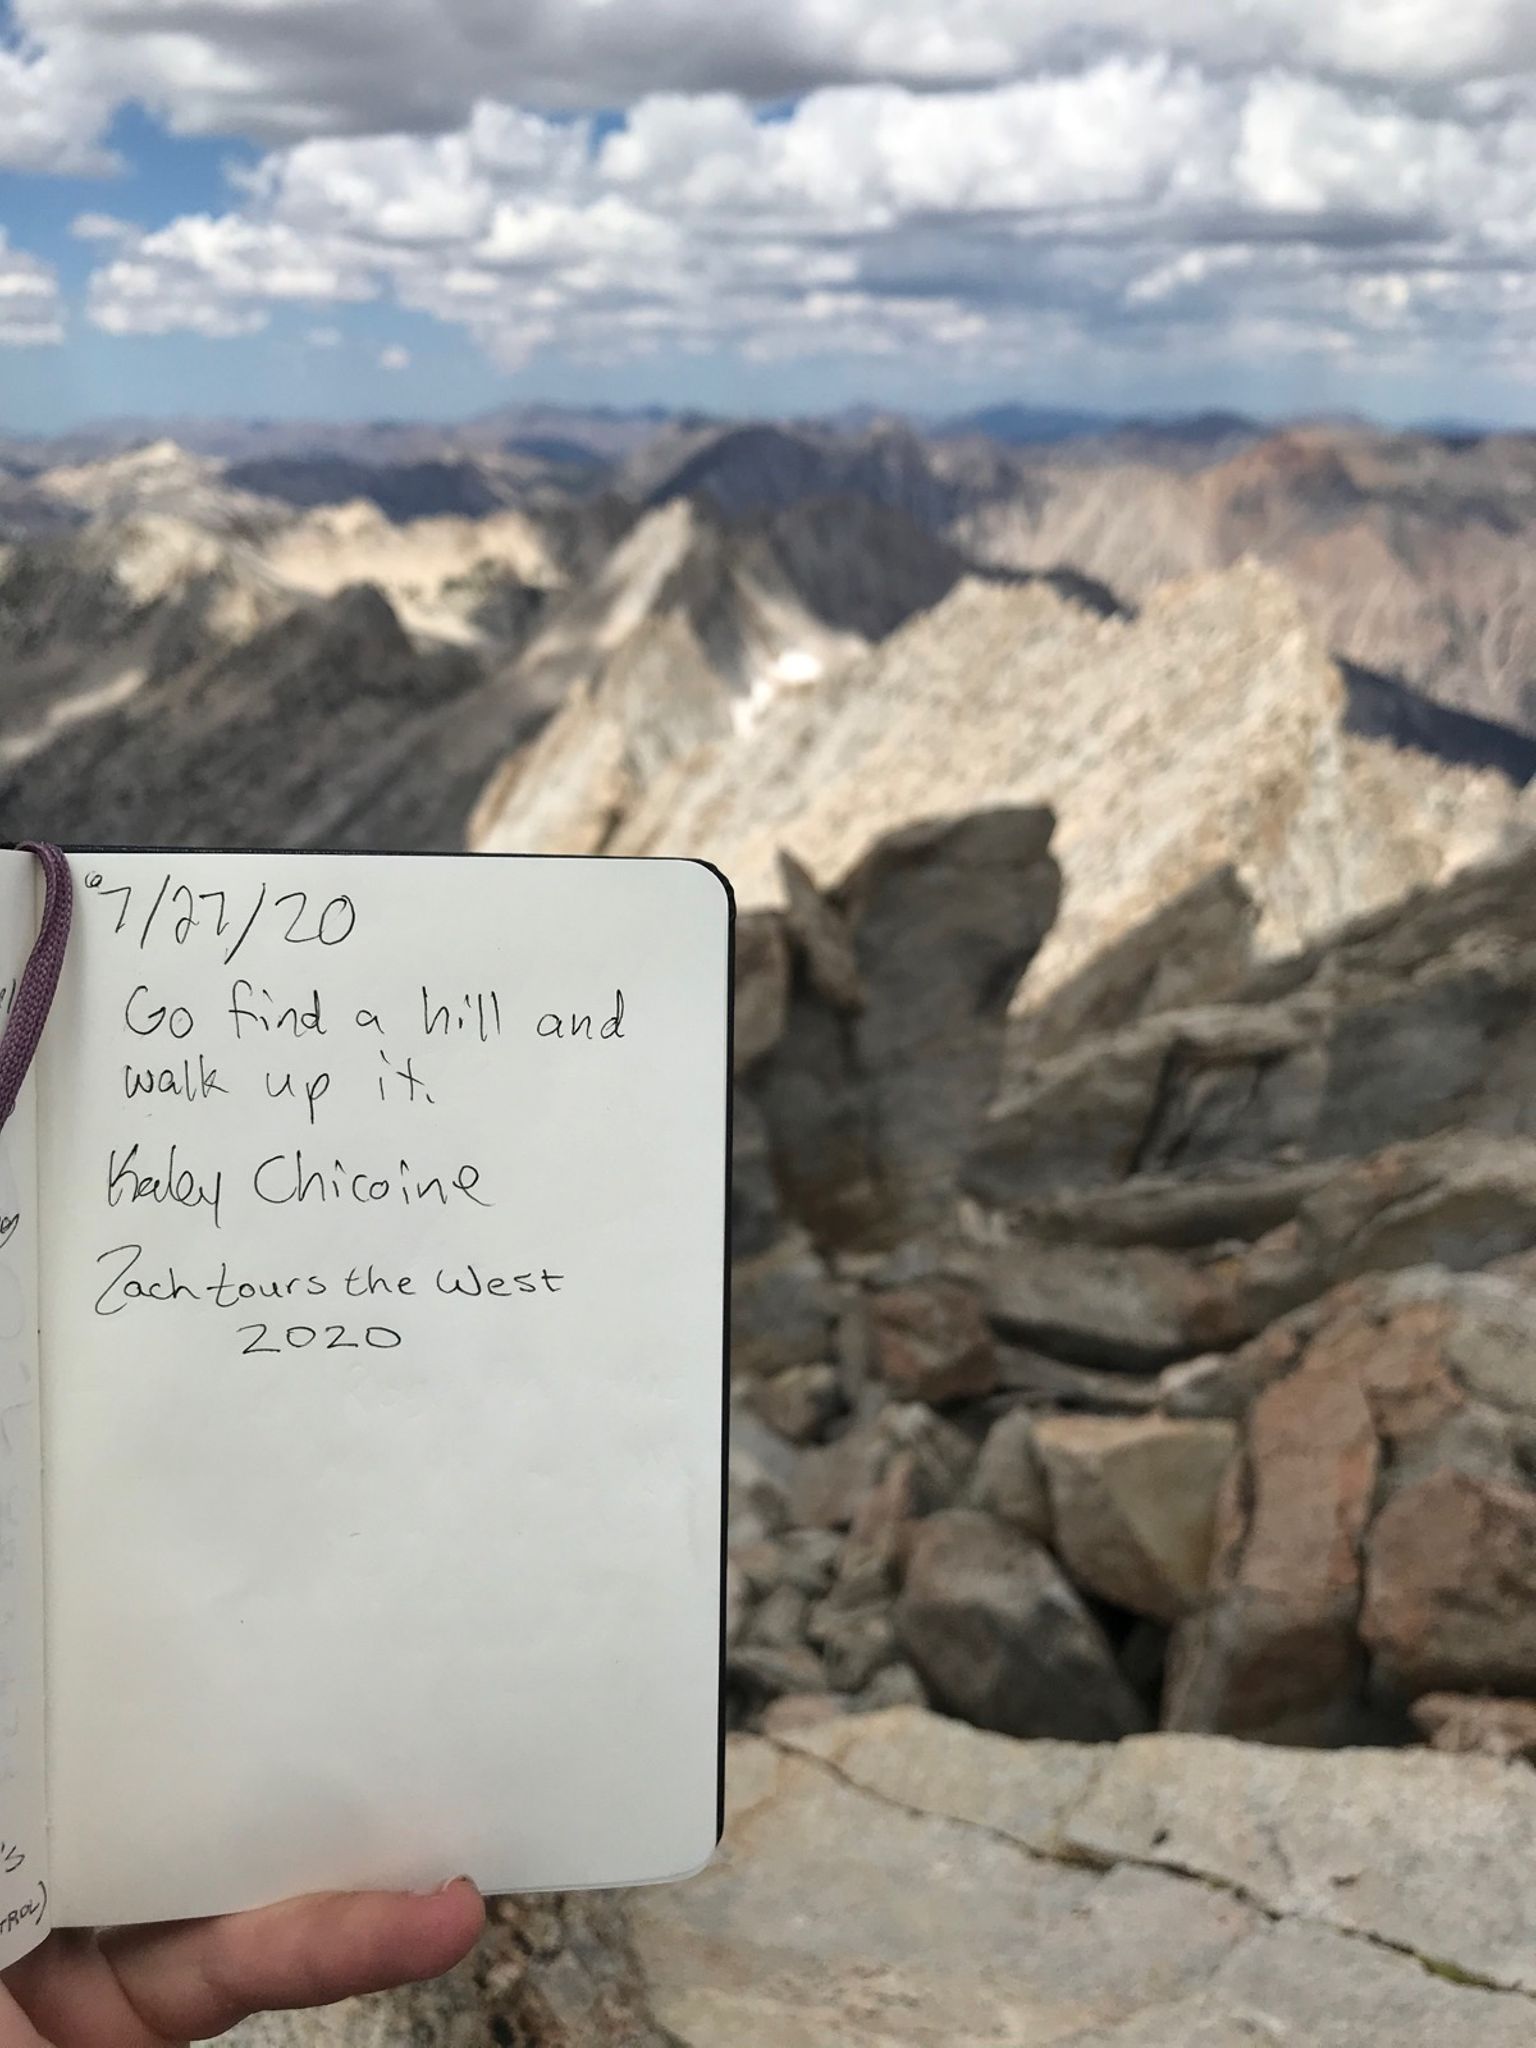 7/27/20
Go find a hill and
walk up it.
Kaley Chicoine
Zach tours the West
2020
's
TROL)